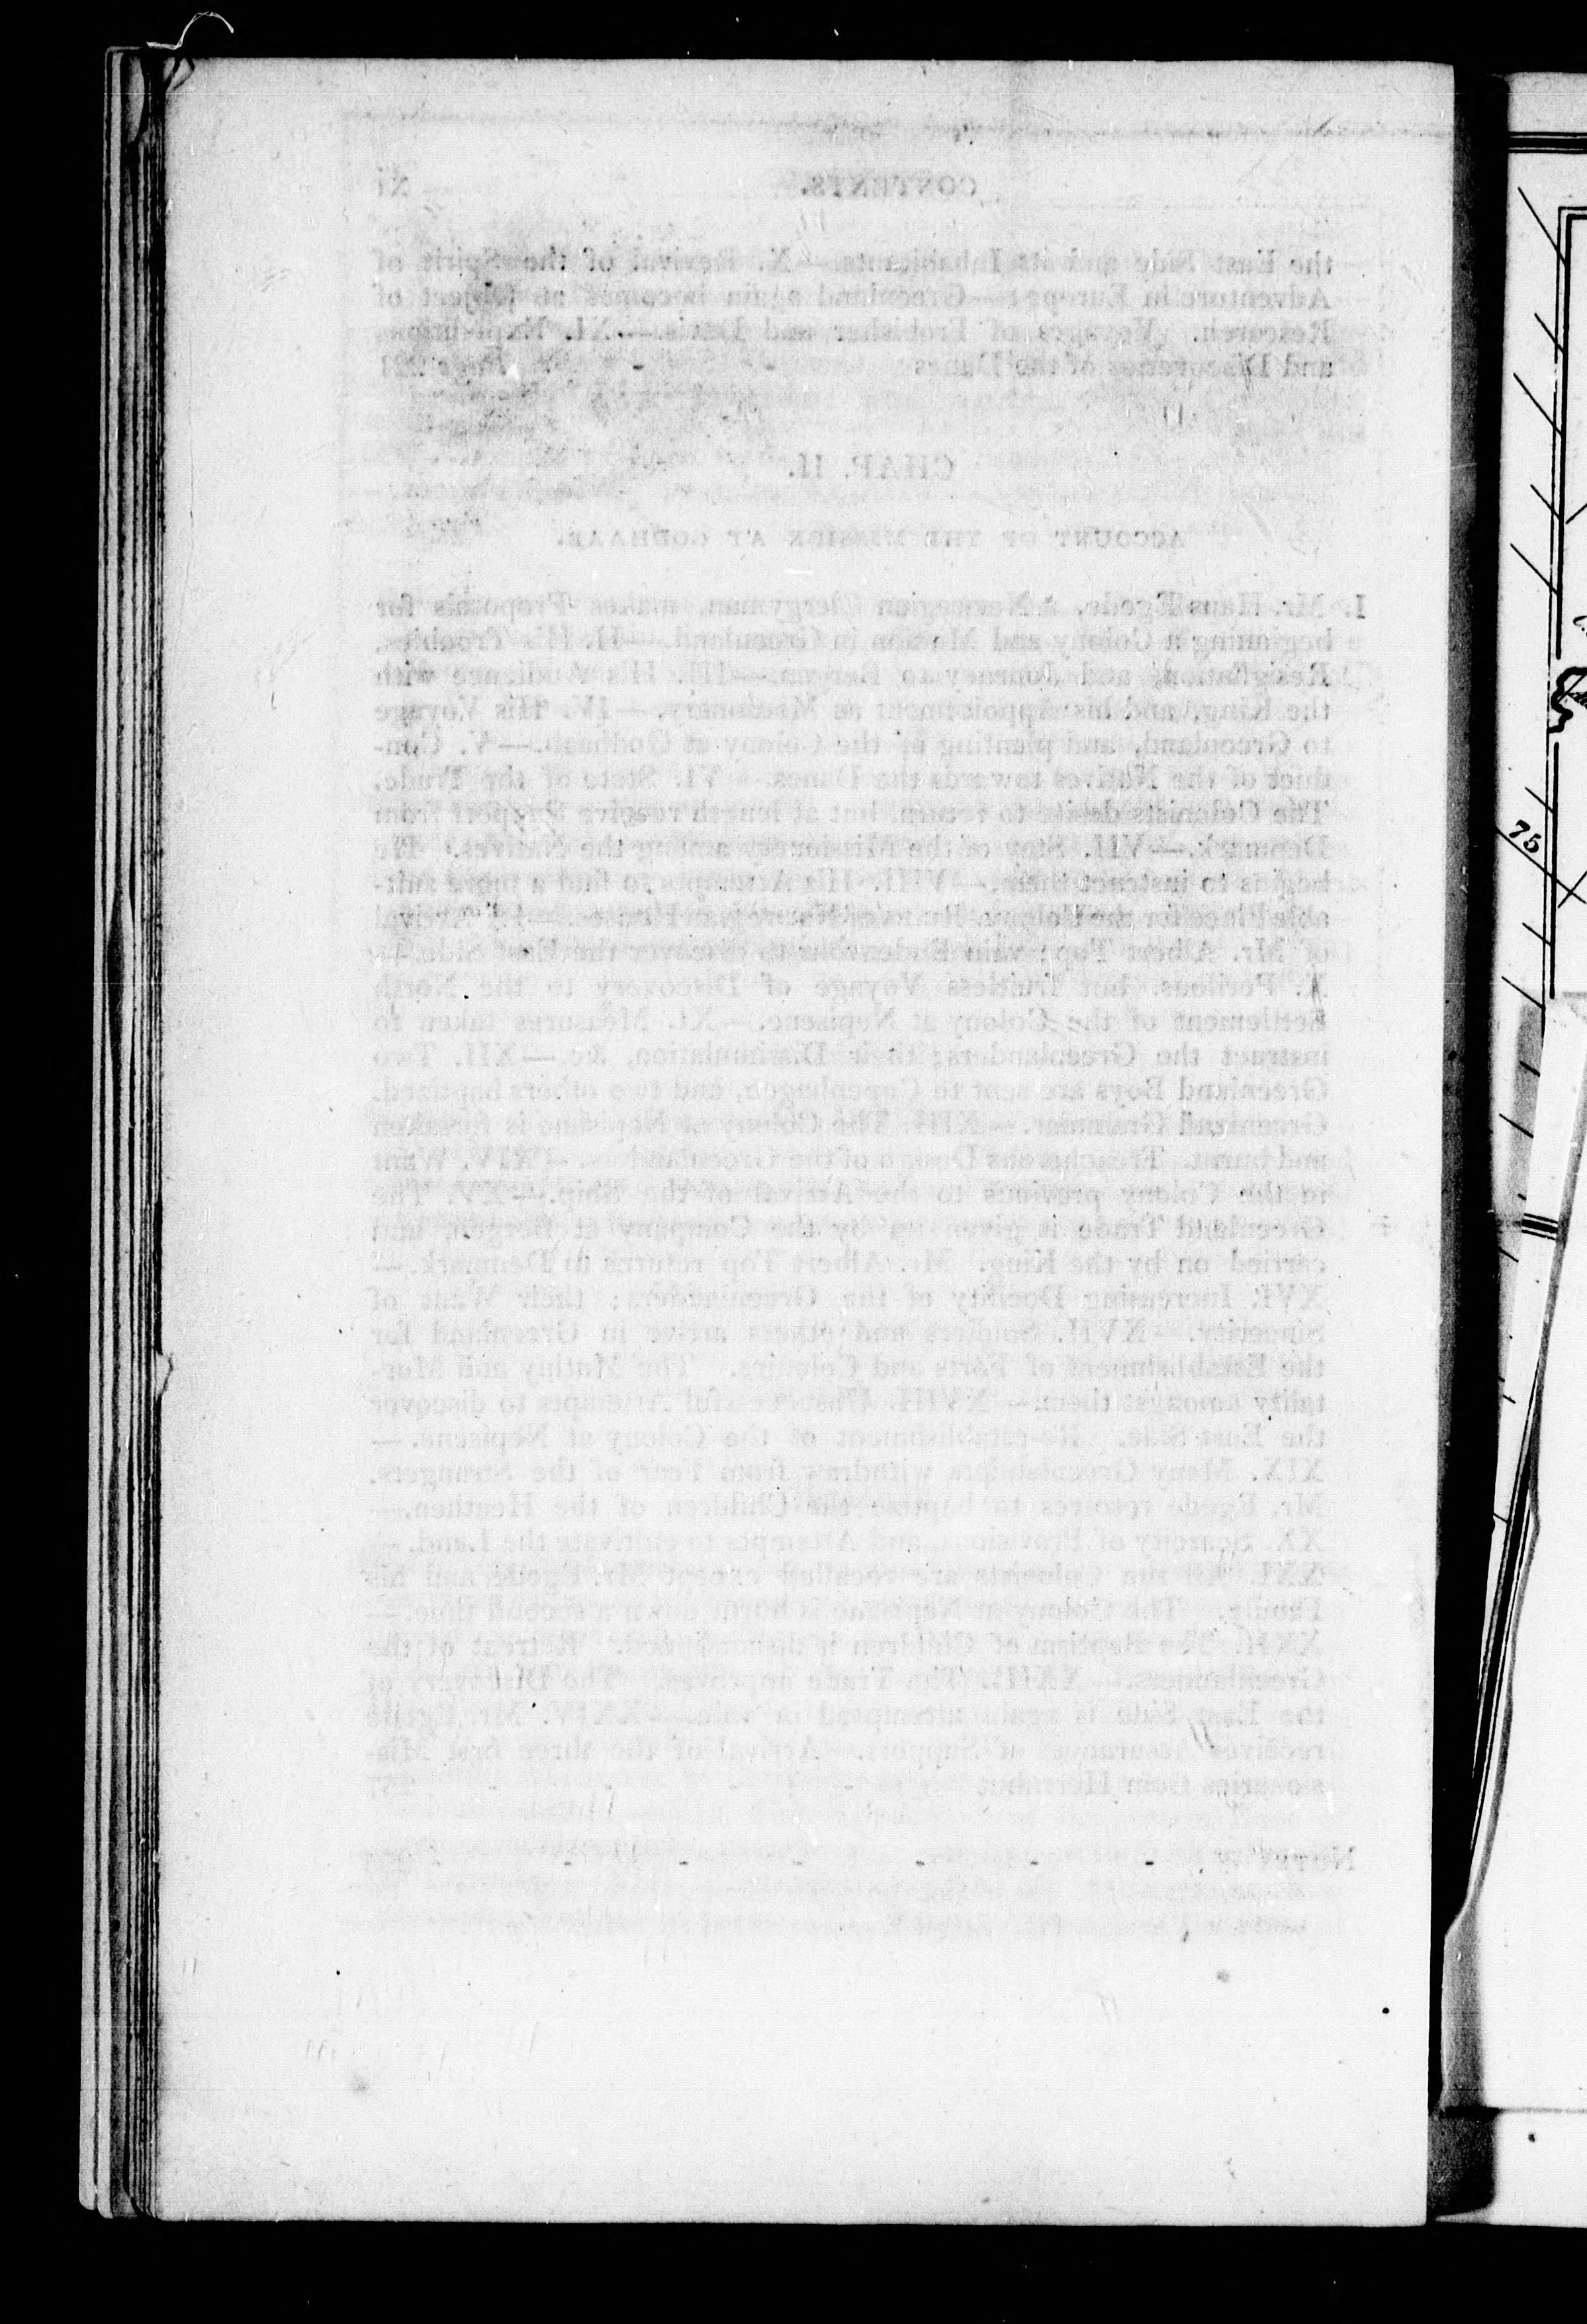 CONTENTS. xi
the East Side and its Inhabitants.—X. Revival of the Spirit of
Adventure in Europe;—Greenland again becomes an Object of
Research. Voyages of Frobisher and Davis.—XI. Expeditions
and Discoveries of the Danes - - Page 221
CHAP. II.
ACCOUNT OF THE MISSION AT GODHAAB.
I. Mr. Hans Egede, a Norwegian Clergyman, makes Proposals for
beginning a Colony and Mission in Greenland.—II. His Troubles,
Resignation, and Journey to Bergen.—III. His Audience with
the King, and his Appointment as Missionary.—IV. His Voyage
to Greenland, and planting of the Colony at Godhaab.—V. Con-
duct of the Natives towards the Danes.—VI. State of the Trade.
The Colonists desire to return, but at length receive Support from
Denmark.—VII. Stay of the Missionary among the Natives. He
begins to instruct them.—VIII. His Attempts to find a more suit-
able Place for the Colony. Norwegian Houses.—IX. Arrival
of Mr. Albert Top; vain Endeavours to discover the East Side.—
X. Perilous, but fruitless Voyage of Discovery to the North
Settlement of the Colony at Nepisene.—XI. Measures taken to
instruct the Greenlanders; their Dissimulation, &c.—XII. Two
Greenland Boys are sent to Copenhagen, and two others baptized.
Greenland Grammar.—XIII. The Colony at Nepisene is forsaken
and burnt. Treacherous Design of the Greenlanders.—XIV. Want
in the Colony previous to the Arrival of the Ship.—XV. The
Greenland Trade is given up by the Company at Bergen, and
carried on by the King. Mr. Albert Top returns to Denmark.—
XVI. Increasing Docility of the Greenlanders; their Want of
Sincerity.—XVII. Soldiers and others arrive in Greenland for
the Establishment of Forts and Colonies. The Mutiny and Mor-
tality amongst them.—XVIII. Unsuccessful Attempts to discover
the East Side. Re-establishment of the Colony at Nepisene.—
XIX. Many Greenlanders withdraw from Fear of the Strangers.
Mr. Egede resolves to baptize the Children of the Heathen.—
XX. Scarcity of Provisions, and Attempts to cultivate the Land.—
XXI. All the Colonists are recalled except Mr. Egede and his
Family. The Colony at Nepisene is burnt down a second time.—
XXII. The Baptism of Children is discontinued. Retreat of the
Greenlanders.—XXIII. The Trade improves. The Discovery of
the East Side is again attempted in vain.—XXIV. Mr. Egede
receives Assurances of Support. Arrival of the three first Mis-
sionaries from Herrnhut
NOTES
75